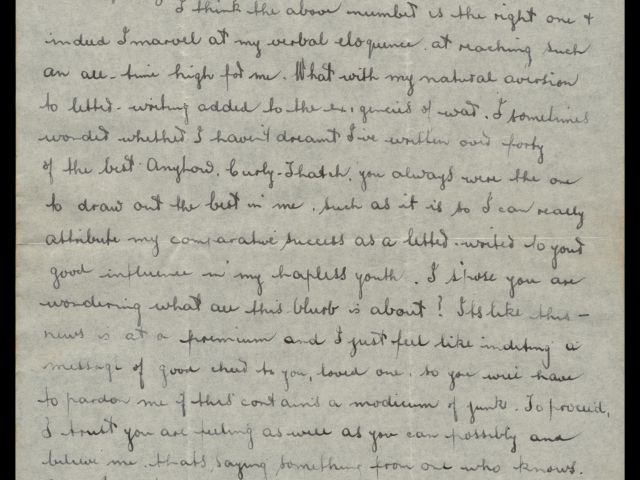 I think the above number is the right one +
indeed I marvel at my verbal eloquence. at reaching such
an all-time high for me. What with my natural aversion
to letter-writing added to the exigencies of war. I sometimes
wonder whether I haven't dreamt I've written over forty
of the best. Anyhow, Curly-Thatch, you always were the one
to draw out the best in me, such as it is so I can really
attribute my comparative success as a letter-writer to your
good influence in my hapless youth. I s'pose you are
wondering what all this blurb is about? Its like this –
news is at a premium and I just feel like inditing a
message of good cheer to you, loved one. so you will have
to pardon me if this contains a modicum of junk. To proceed,
I trust you are feeling as well as you can possibly and
believe me. thats saying something from one who knows.